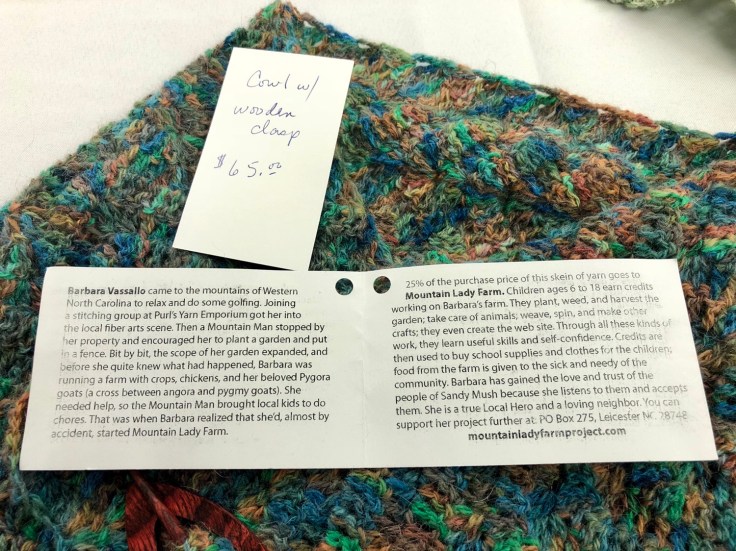 Cowl w/
wooden
clasp
$65.00
Barbara Vassallo came to the mountains of Western
North Carolina to relax and do some golfing. Joining
a stitching group at Purl's Yarn Emporium got her into
the local fiber arts scene. Then a Mountain Man stopped by
her property and encouraged her to plant a garden and put
in a fence. Bit by bit, the scope of her garden expanded, and
before she quite knew what had happened, Barbara was
running a farm with crops, chickens, and her beloved Pygora
goats (a cross between angora and pygmy goats). She
needed help, so the Mountain Man brought local kids to do
chores. That was when Barbara realized that she'd, almost by
accident, started Mountain Lady Farm.
25% of the purchase price of this skein of yarn goes to
Mountain Lady Farm. Children ages 6 to 18 earn credits
working on Barbara's farm. They plant, weed, and harvest the
garden; take care of animals; weave, spin, and make other
crafts; they even create the web site. Through all these kinds of
work, they learn useful skills and self-confidence. Credits are
then used to buy school supplies and clothes for the children;
food from the farm is given to the sick and needy of the
community. Barbara has gained the love and trust of the
people of Sandy Mush because she listens to them and accepts
them. She is a true Local Hero and a loving neighbor. You can
support her project further at: PO Box 275, Leicester NC 28748
mountainladyfarmproject.com